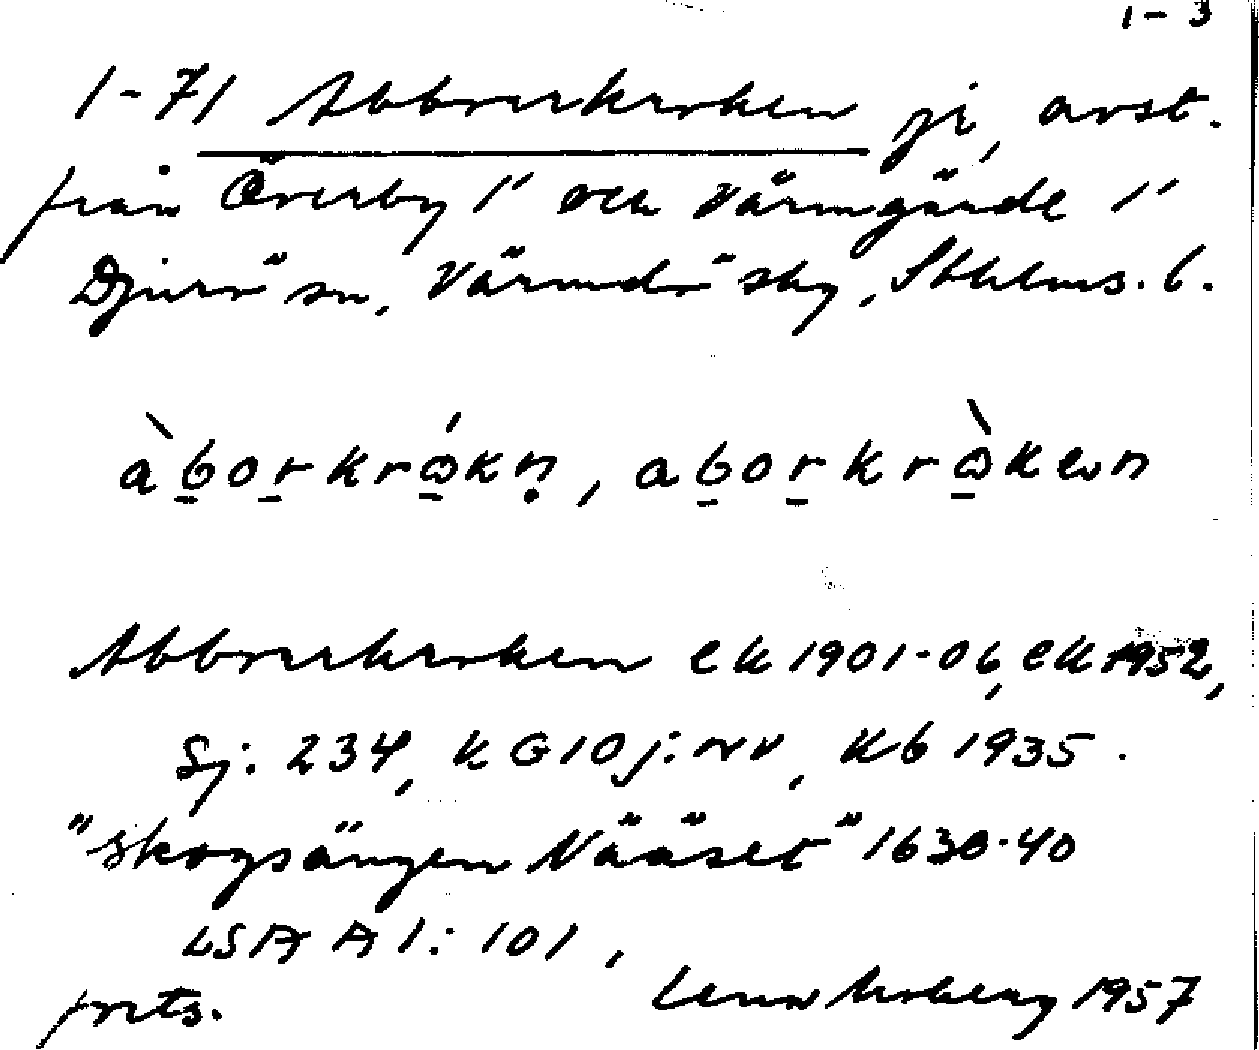 1-3
1-71 Abborrkroken jı, avst.
från Överby 1' och Värmgårde 1'
Djurö sn, Värmdö skg, Sthlms. l.
àborkrókn̥, aborkròken
Abborrkroken ek 1901-06, ek 1952,
Sj: 234, KG 10 j: NV, Kb 1935.
"skogsängen Nääset" 1630-40
LSA A 1: 101,
forts. 1957